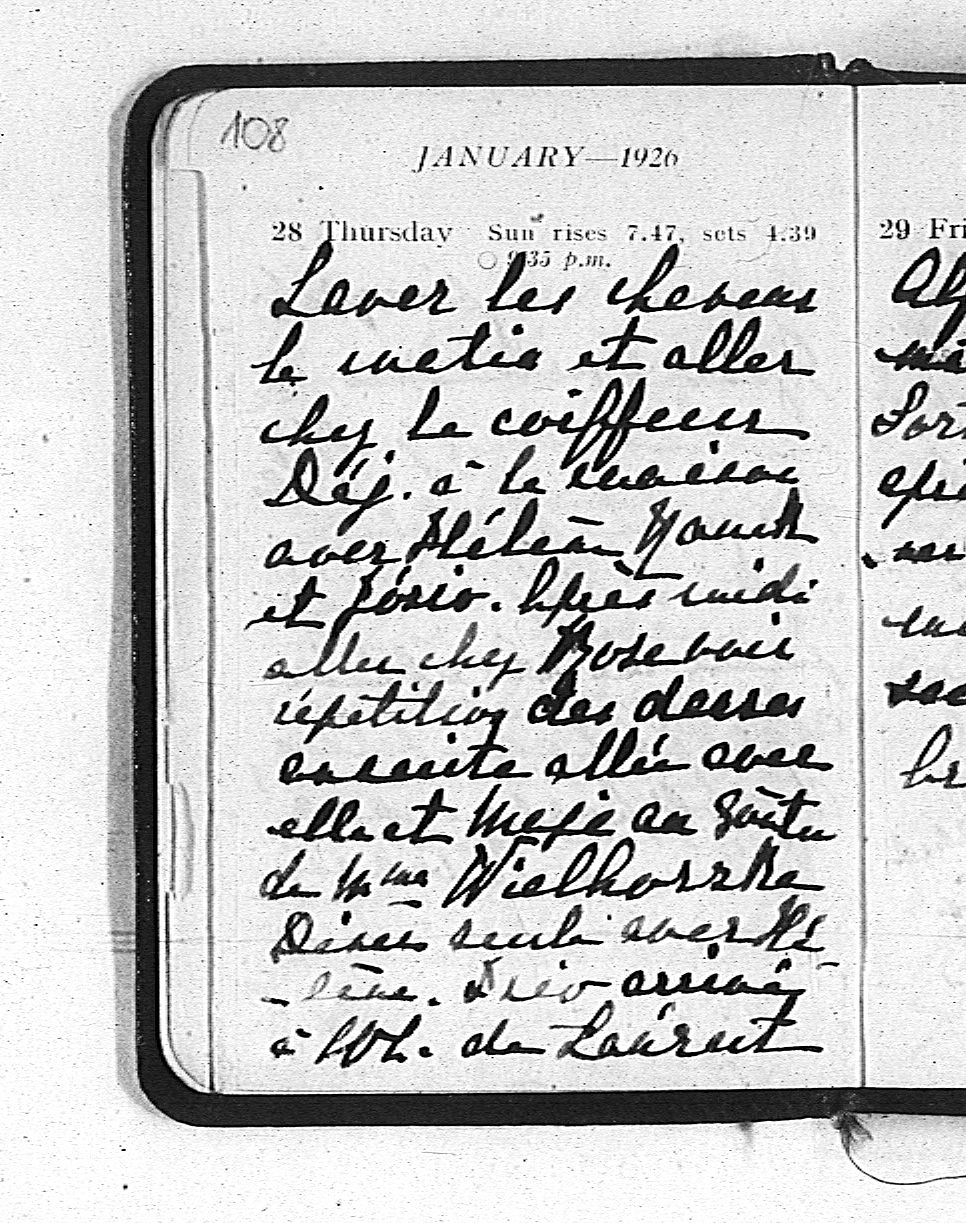 108
JANUARY—1926
28 Thursday Sun rises 7.47, sets 4.39
○ 9.35 p.m.
Laver les cheveux
le matin et aller
chez le coiffeur
Déj. à la maison
avec Hélène
et Józio. Après midi
allée chez Rose voir
répétition des danses
ensuite allée avec
elle et au Goûter
de Mme Wielhorska
Dîner seule avec Hé
-lène. arrivé
à 10h. de Laurent
29 Fri